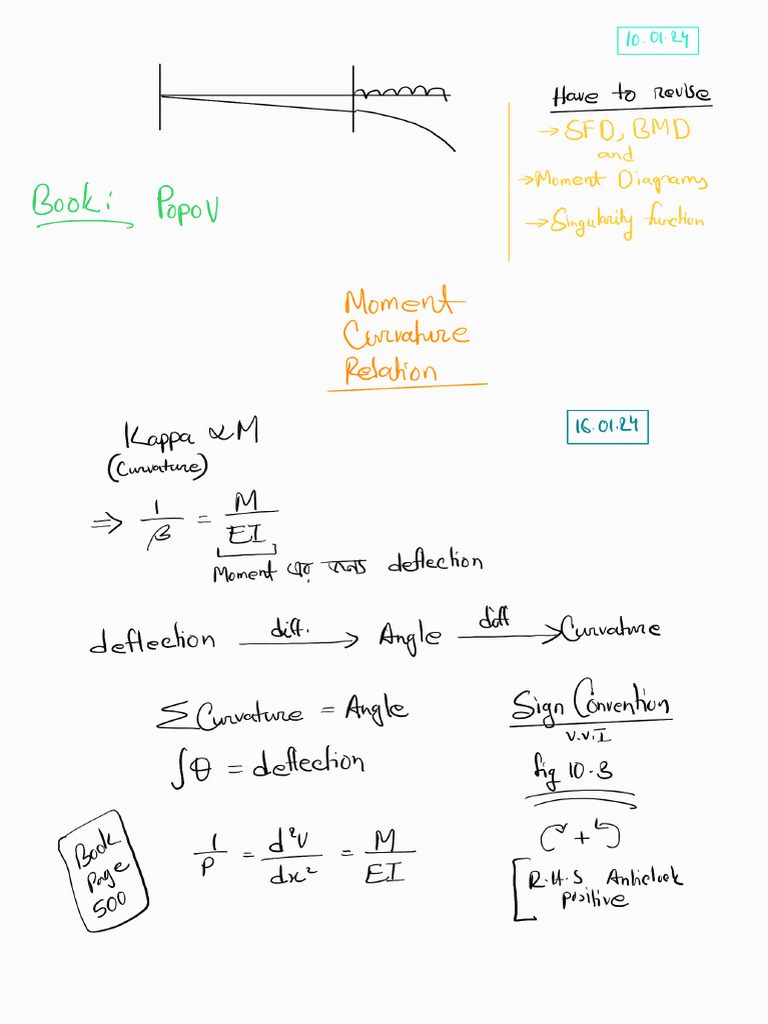 10.01.24
Have to revise
→ SFD, BMD
and
→ Moment Diagrams
→ Singularity function
Book: Popov
Moment
Curvature
Relation
16.01.24
Kappa ∝ M
(Curvature)
⇒ 1/β = M/EI
Moment এর জন্য deflection
deflection diff. → Angle diff → Curvature
Σ Curvature = Angle
∫θ = deflection
Sign Convention
v.v.I
fig 10.3
+
R.H.S Anticlock
positive
Book
Page
500
1/ρ = d²v/dx² = M/EI